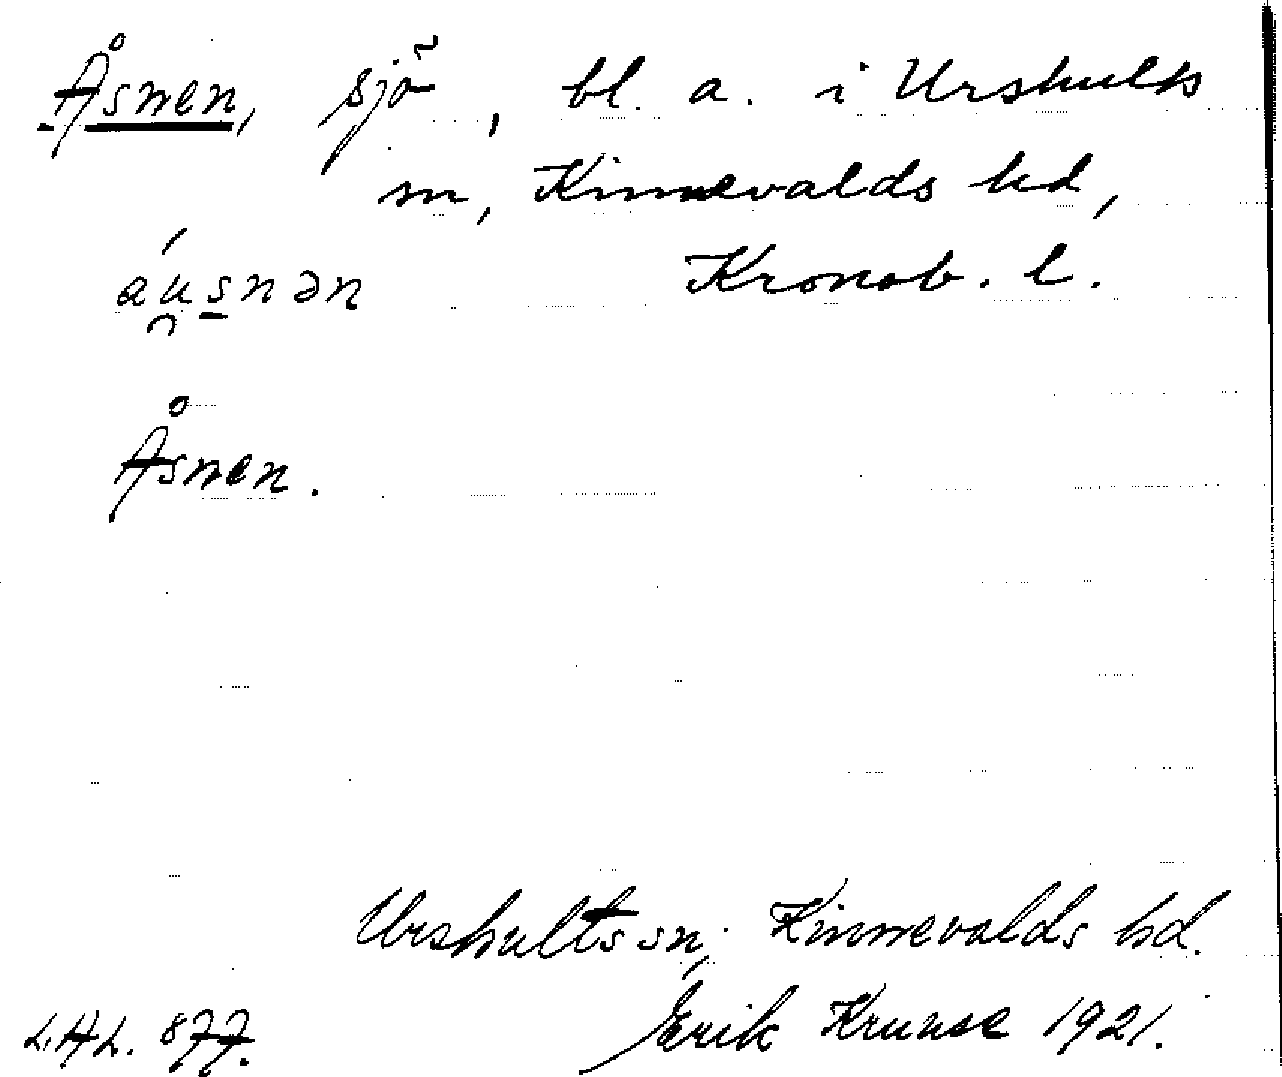 Åsnen, sjö, bl. a. i Urshults
sn, Kinnevalds hd,
áu̯snən Kronob. l.
Åsnen.
Urshults sn, Kinnevalds hd.
L.H.L. 877. Erik Kruuse 1921.